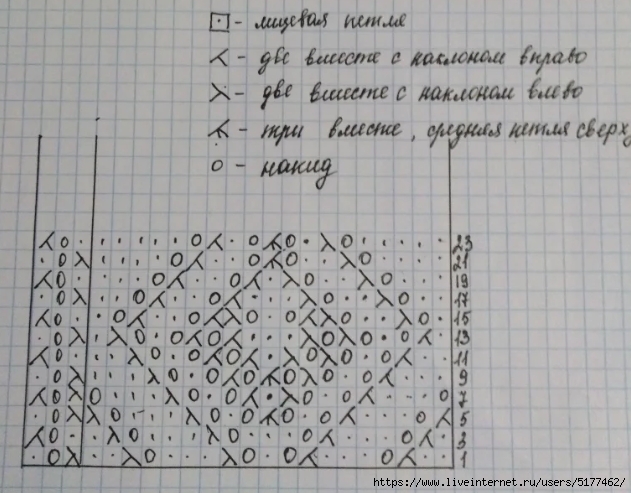 ⊡ - лицевая петля
⋌ - две вместе с наклоном вправо
λ - две вместе с наклоном влево
- три вместе, средняя петля сверху
о - накид
23
21
19
17
15
13
11
9
7
5
3
1
https://www.liveinternet.ru/users/5177462/